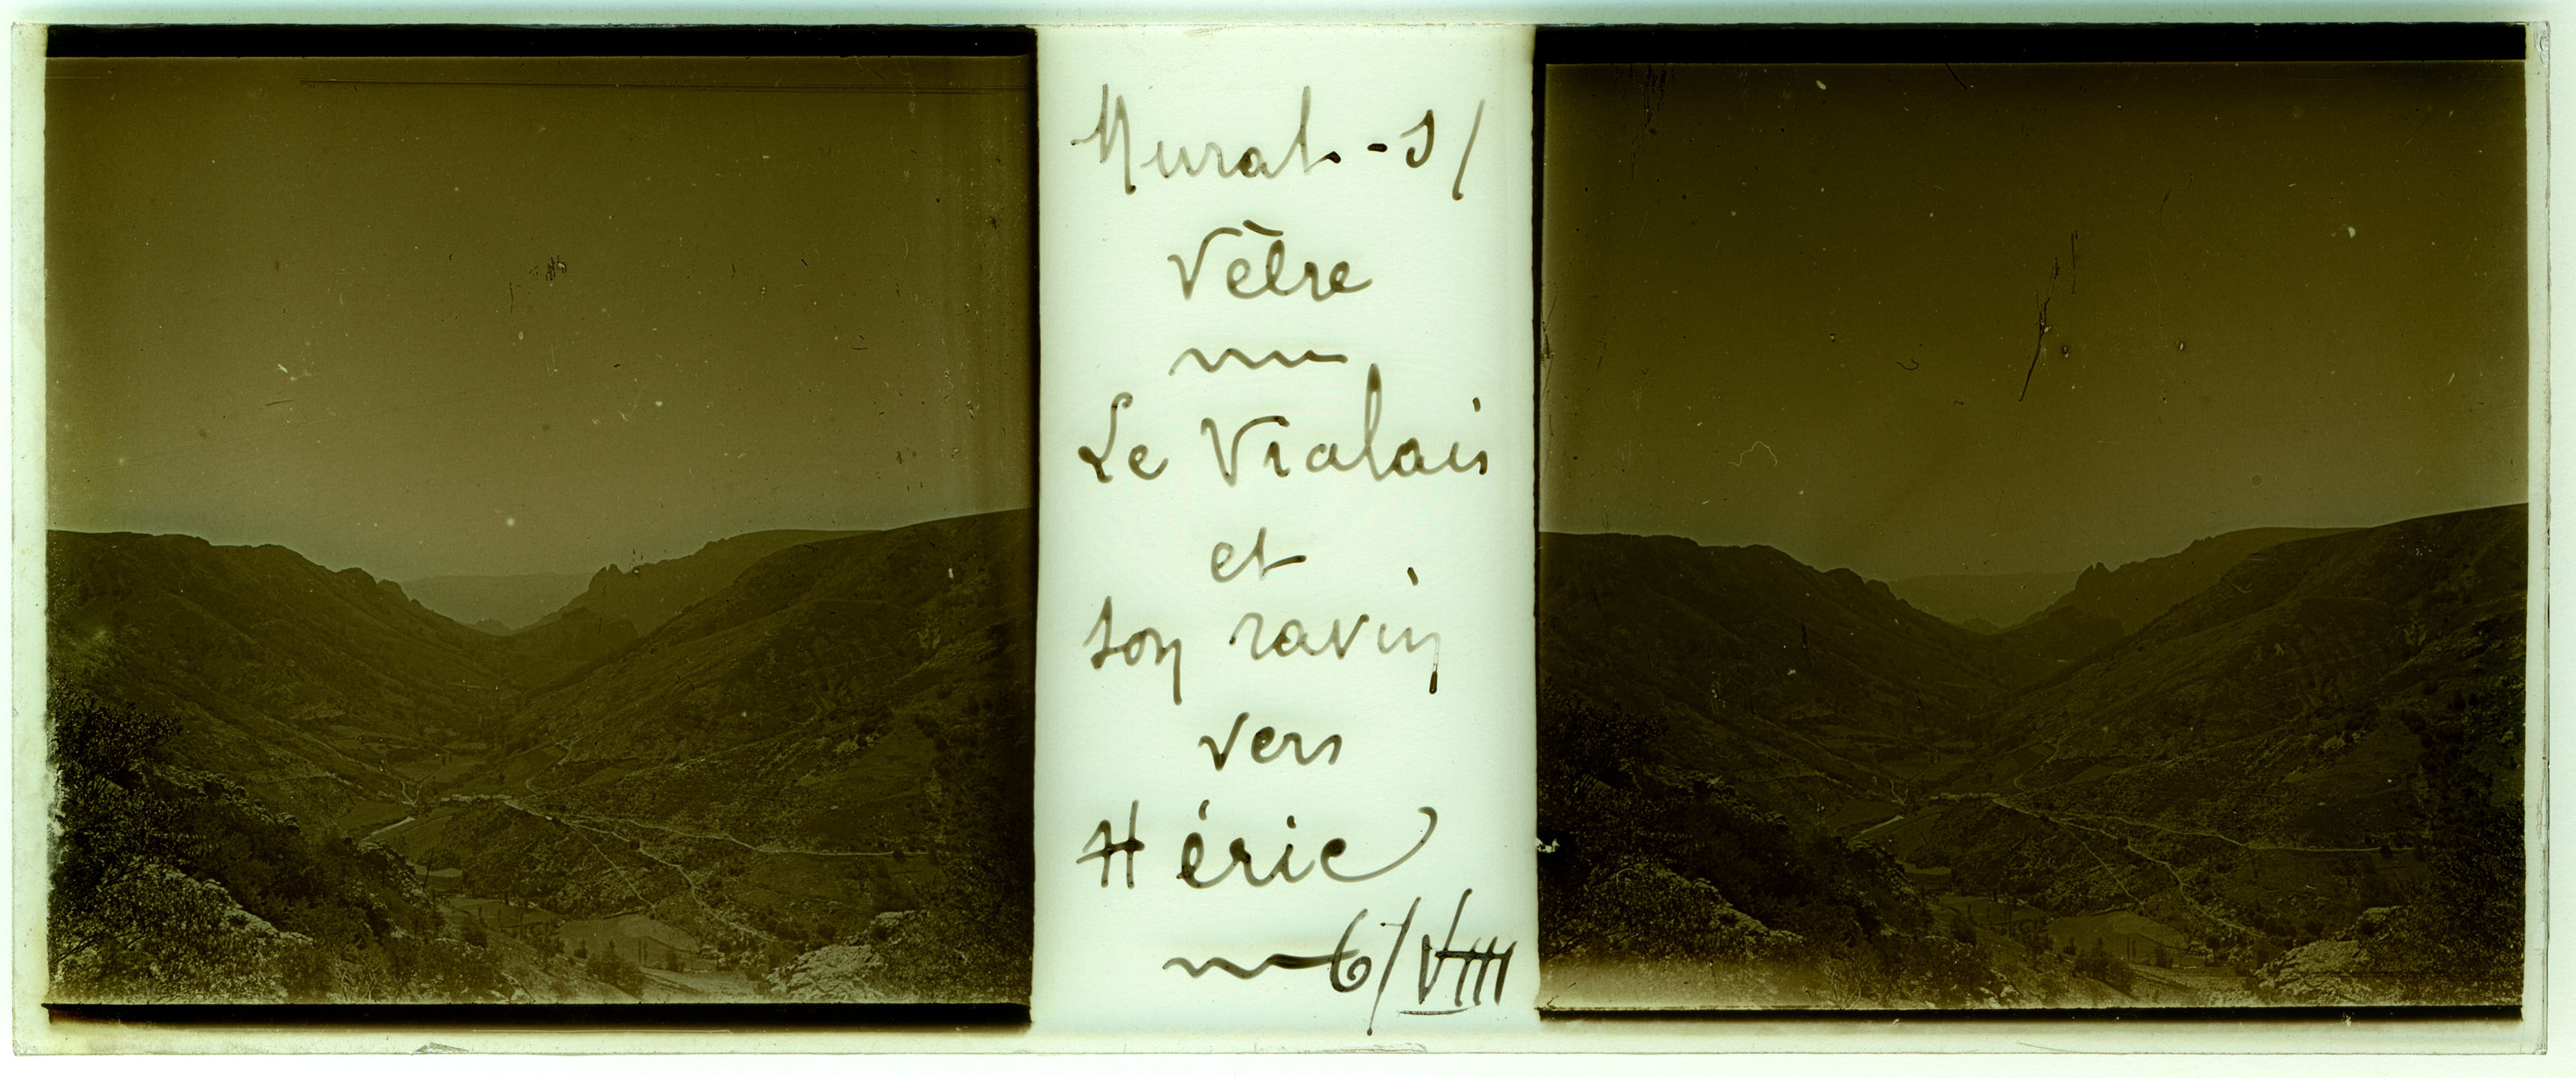 Murat-s/
Vèbre
Le Vialais
et
son ravin
vers
Héric
6/VIII